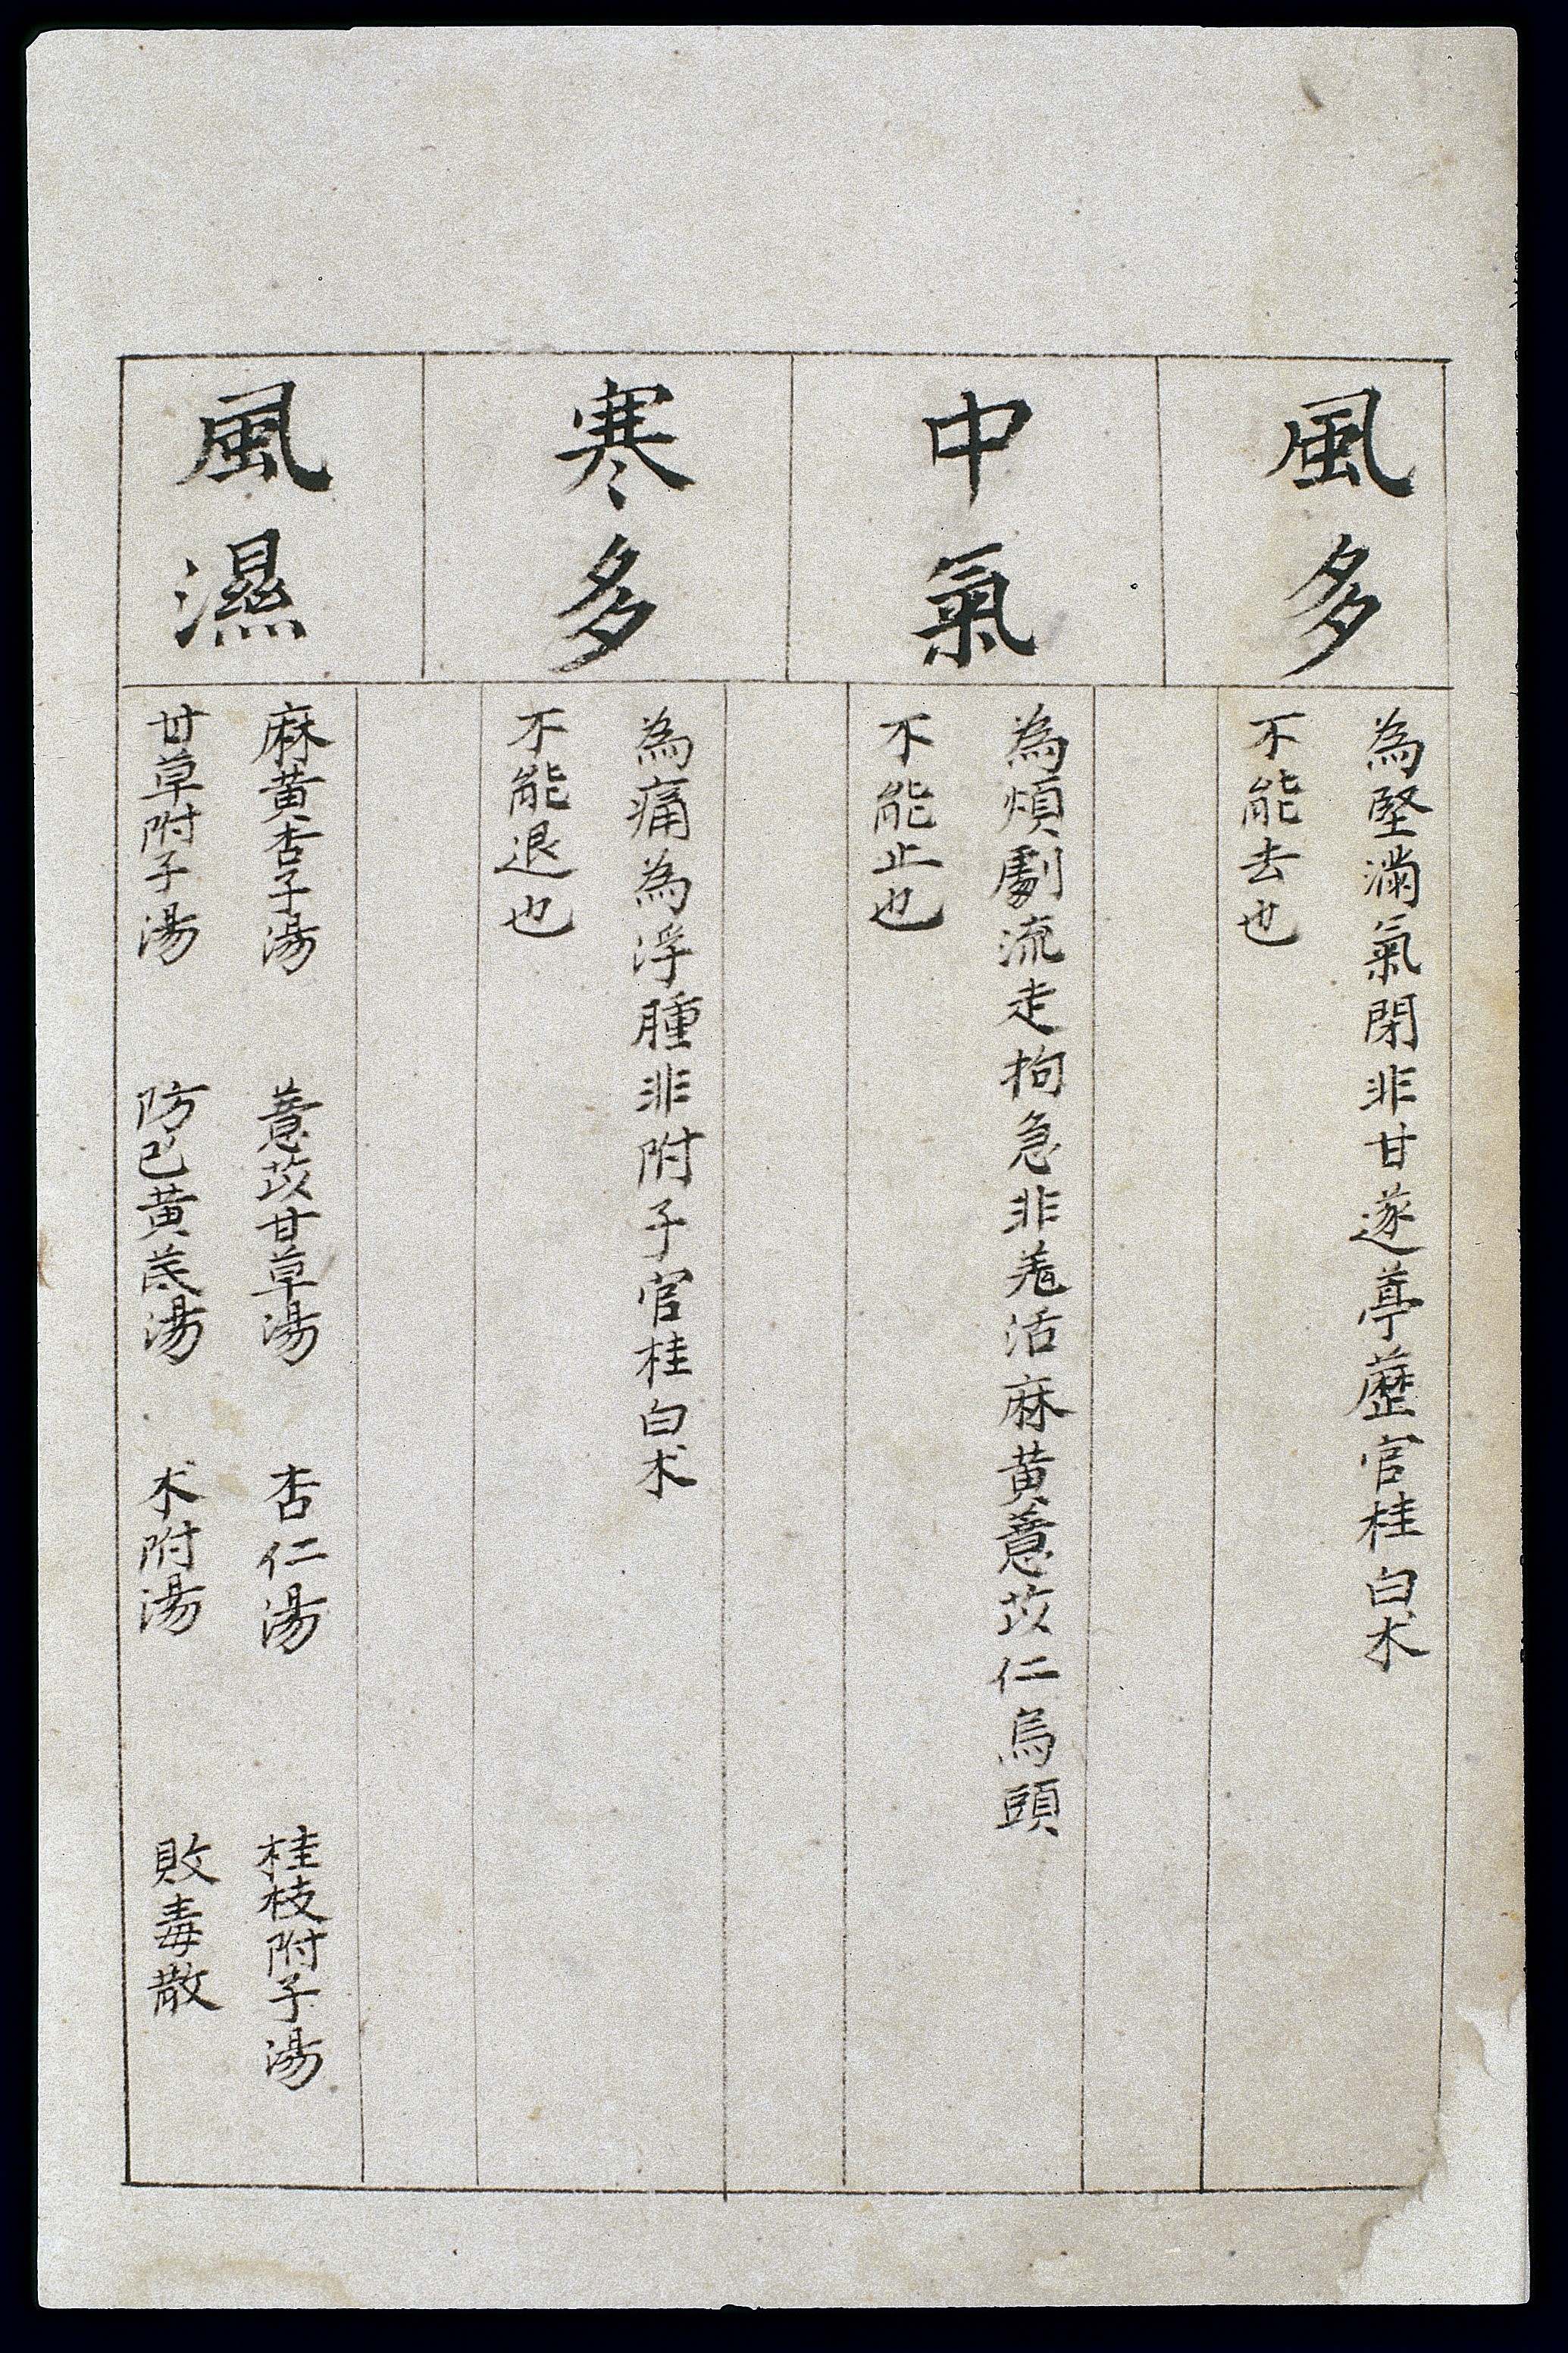 風多
為堅滿氣閉非甘遂葶藶官桂白术
不能去也
中氣
為煩劇流走拘急非羗活麻黃薏苡仁烏頭
不能止也
寒多
為痛為浮腫非附子官桂白术
不能退也
風濕
麻黃杏子湯 薏苡甘草湯 杏仁湯 桂枝附子湯
甘草附子湯 防已黃芪湯 术附湯 敗毒散